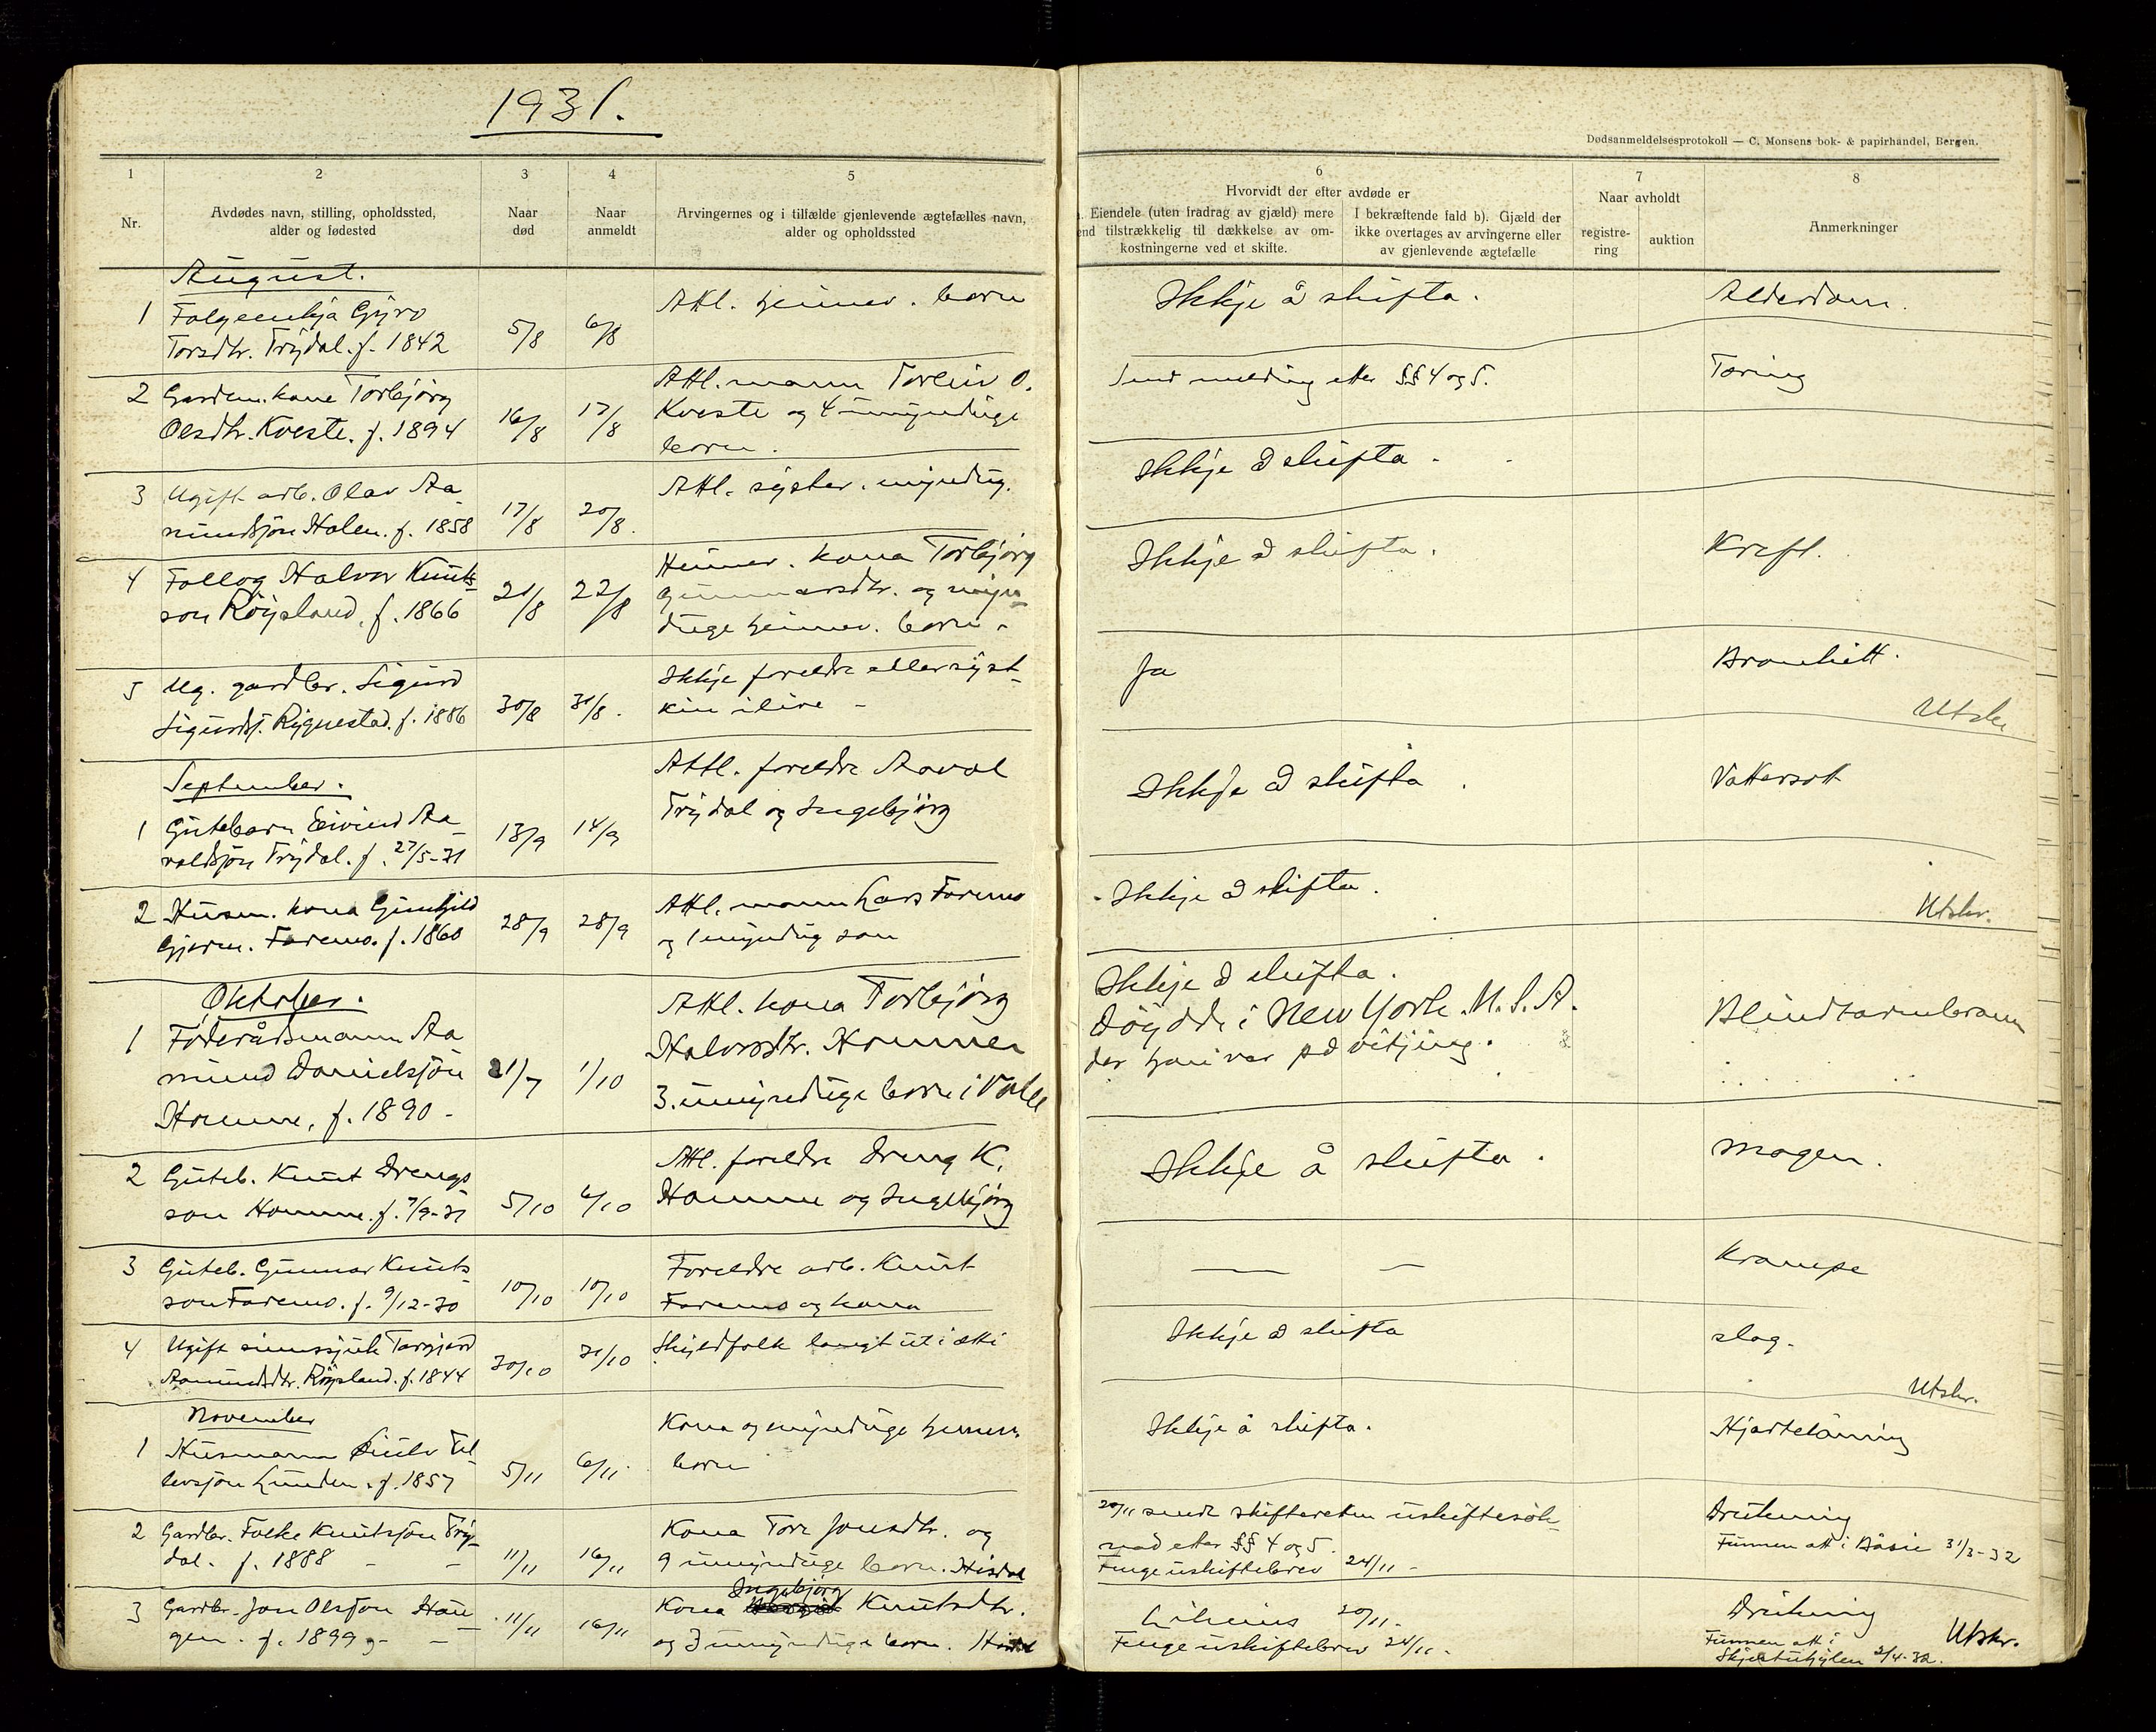 1931.
Dødsanmeldelsesprotokoll — C. Monsens bok- & papirhandel, Bergen.
1
Nr.
2
Avdødes navn, stilling, opholdssted,
alder og fødested
3
Naar
død
4
Naar
anmeldt
5
Arvingernes og i tilfælde gjenlevende ægtefælles navn,
alder og opholdssted
6
Hvorvidt der efter avdøde er
Eiendele (uten fradrag av gjæld) mere
end tilstrækkelig til dækkelse av om-
kostningerne ved et skifte.
I bekræftende fald b). Gjæld der
ikke overtages av arvingerne eller
av gjenlevende ægtefælle
7
Naar avholdt
registre-
ring
auktion
8
Anmerkninger
August.
1 Folgeenkja Gyro
Torsdtr. Trydal. f. 1842
5/8 6/8
Attl. heimev. born
Ikkje å skifta.
Alderdom.
2 Gardm. kone Torbjörg
Olsdtr. Kveste. f. 1894
16/8 17/8
Attl. mann Torleiv O.
Kveste og 4 umyndige
born.
Send melding etter §§ 4 og 5.
Tæring
3 Ugift arb. Olav Aa-
mundsjon Holen. f. 1858
17/8 20/8.
Attl. syster. myndig.
Ikkje å skifta.
4 Follog Halvor Knuts-
son Röysland, f. 1866
21/8 22/8
Heimev. kona Torbjörg
Gunnarsdtr. og myn-
dige heimev. born.
Ikkje å skifta.
Kreft.
5 Ug. gardbr. Sigurd
Sigurdsj. Rygnestad. f. 1886
30/8 31/8.
Ikkje foreldre eller syst-
kin i live
Ja
Utskr
September.
1 Gutebarn Eivind Aa-
valdsjon Trydal. f. 27/5-31
13/9 14/9
Attl. foreldre Aavol
Trydal og Ingebjörg
Ikkje å skifta.
Vattersott
2 Husm. kona Gunhild
Gjerm. Faremo. f. 1860
28/9 28/9
Attl. mann Lars Faremo
og 1 myndig son
Ikkje å skifta.
Utskr.
Oktober.
1 Föderådsmann Aa
mund Danielsjon
Homme, f. 1890
21/7 1/10
Attl. kona Torbjörg
Halvorsdtr. Homme
3 umyndige born i Valle
Ikkje å skifta.
Döydde i New York. U.S.A.
der han var på vitjing.
Blindtarmbrann
2 Guteb. Knut Drengs
son Homme. f. 7/9-31
5/10 6/10
Attl. foreldre Dreng K.
Homme og Ingebjörg
Ikkje å skifta.
Magen.
3 Guteb. Gunnar Knuts-
son Faremo. f. 9/12-30
10/10 10/10
Foreldre arb. Knut
Faremo og kona
— —
Krampe
4 Ugift sinnssjuk Targjerd
Aamundsdtr. Röysland. f. 1844
30/10 31/10
Skyldfolk langt ut i ætti
Ikkje å skifta
slag.
Utskr.
November
1 Husmann Tel-
levsjon Lunden. f. 1857
5/11 6/11
Kona og myndige heimev.
born
Ikkje å skifta.
Hjartelåming
2 Gardbr. Folke Knutsjon Try-
dal. f. 1888
11/11 16/11
Kona Tore Jonsdtr. og
9 umyndige born.
20/11 sende skifteretten uskiftesök-
nad etter §§ 4 og 5.
Fenge uskiftebrev 24/11
Drukning
Funnen att i Båsie 31/3-32
3 Gardbr. Jon Olsson Hau-
gen. f. 1899
11/11 16/11
Kona Ingebjörg Knutsdtr.
og 3 umyndige born.
20/11.
Fenge uskiftebrev 24/11.
Drukning
Funnen att i
2/4-32.
Utskr.